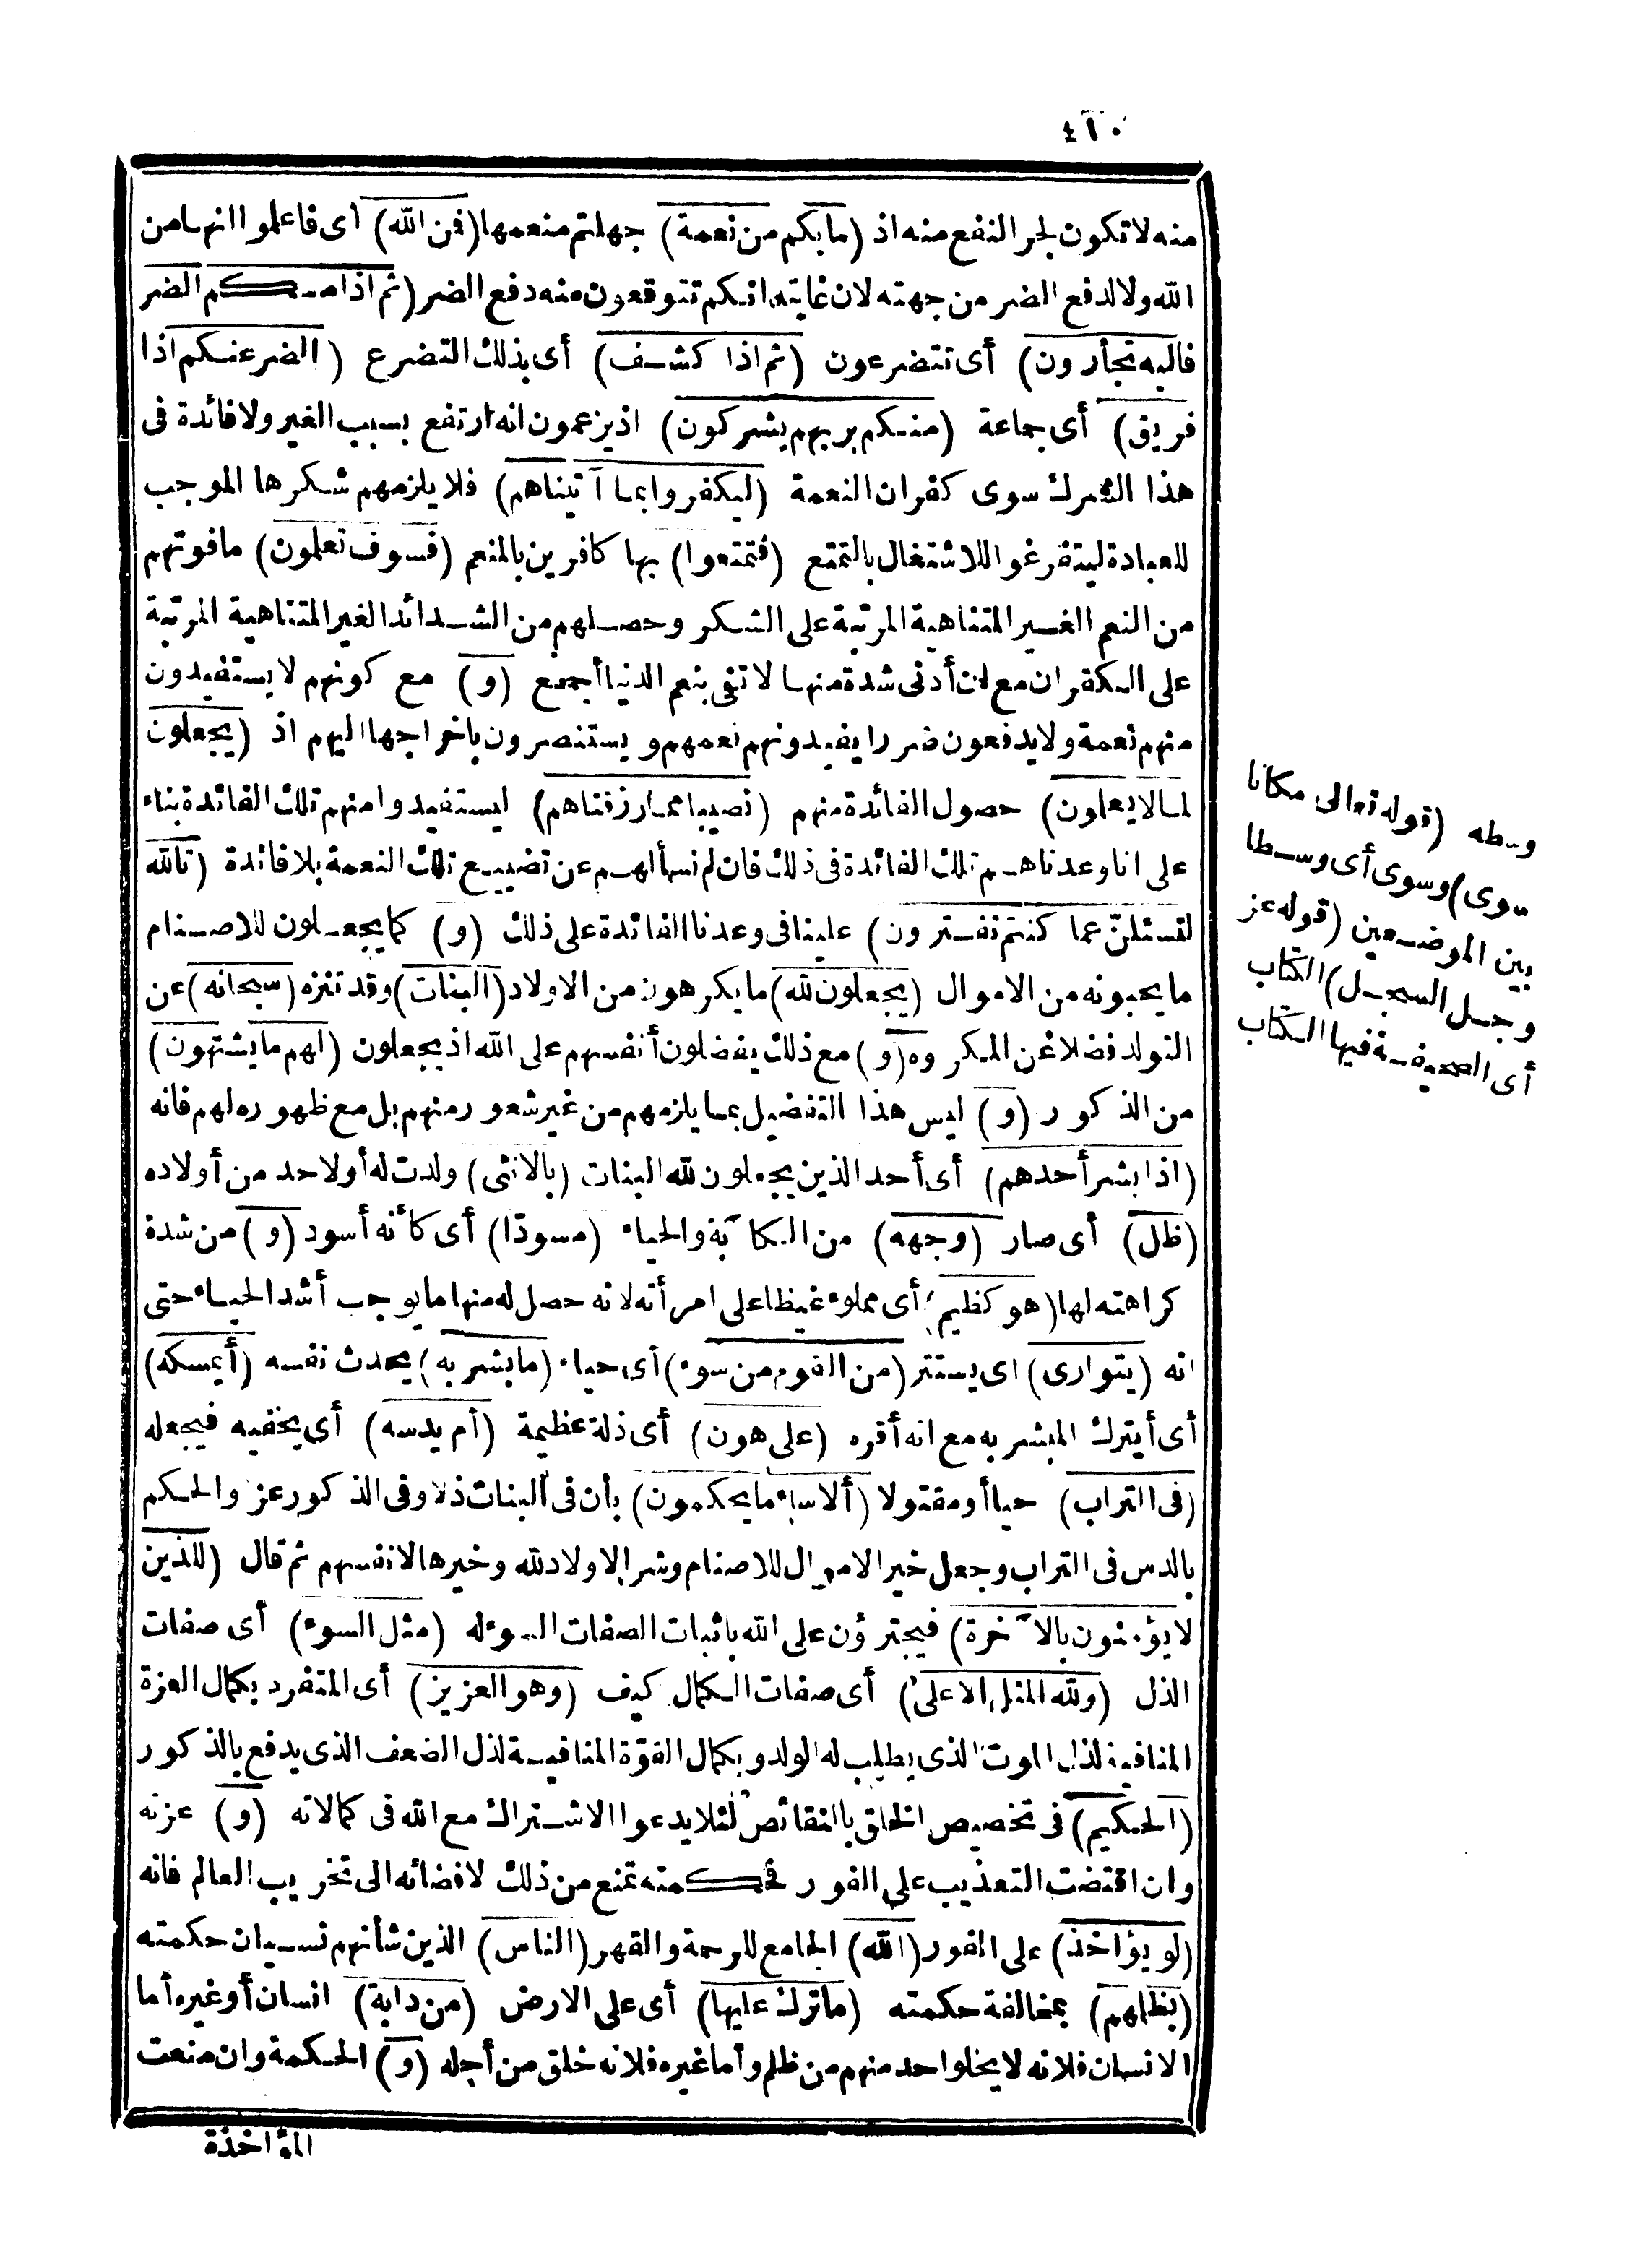 ٤١٠
منه لا تكون لجر النفع منه اذ (ما بكم من نعمة) جهلتم منعمها (فمن الله) أى فاعلموا انها من
الله ولا لدفع الضر من جهته لان غايته انكم تتوقعون منه دفع الضر (ثم اذا مسكم الضر
فاليه تجأرون) أى تتضرعون (ثم اذا كشف) أى بذلك التضرع (الضر عنكم اذا
فريق) أى جماعة (منكم بربهم يشركون) اذ يزعمون انه ارتفع بسبب الغير ولا فائدة فى
هذا الشرك سوى كفران النعمة (ليكفروا بما آتيناهم) فلا يلزمهم شكرها الموجب
للعبادة ليتفرغوا للاشتغال بالتمتع (فتمتعوا) بها كافرين بالمنعم (فسوف تعلمون) ما فوتهم
من النعم الغير المتناهية المرتبة على الشكر وحصل لهم من الشدائد الغير المتناهية المرتبة
على الكفران مع ان أدنى شدة منها لا تفى بنعم الدنيا أجمع (و) مع كونهم لا يستفيدون
منهم نعمة ولا يدفعون ضررا يفيدونهم نعمهم ويستنصرون باخراجها اليهم اذ (يجعلون
لما لا يعلمون) حصول الفائدة منهم (نصيبا مما رزقناهم) ليستفيدوا منهم تلك الفائدة بناء
على انا وعدناهم تلك الفائدة فى ذلك فان لم نسألهم عن تضييع تلك النعمة بلا فائدة (تالله
لتسئلن عما كنتم تفترون) علينا فى وعدنا الفائدة على ذلك (و) كما يجعلون للاصنام
ما يحبونه من الاموال (يجعلون لله) ما يكرهون من الاولاد (البنات) وقد تنزه (سبحانه) عن
التولد فضلا عن المكروه (و) مع ذلك يفضلون أنفسهم على الله اذ يجعلون (لهم ما يشتهون)
من الذكور (و) ليس هذا التفضيل بما يلزمهم من غير شعور منهم بل مع ظهوره لهم فانه
(اذا بشر أحدهم) أى أحد الذين يجعلون لله البنات (بالانثى) ولدت له أو لاحد من أولاده
(ظل) أى صار (وجهه) من الكآبة والحياء (مسودّا) أى كأنه أسود (و) من شدة
كراهته لها (هو كظيم) أى مملوء غيظا على امرأته لانه حصل له منها ما يوجب أشد الحياء حتى
انه (يتوارى) اى يستتر (من القوم من سوء) أى حياء (ما بشر به) يحدث نفسه (أيمسكه)
أى أيترك المبشر به مع انه أقره (على هون) أى ذلة عظيمة (أم يدسه) أى يخفيه فيجعله
(فى التراب) حيا أو مقتولا (ألا ساء ما يحكمون) بأن فى البنات ذلا وفى الذكور عز والحكم
بالدس فى التراب وجعل خير الاموال للاصنام وشر الاولاد لله وخيرها لانفسهم ثم قال (للذين
لا يؤمنون بالآخرة) فيجترؤن على الله باثبات الصفات السوء له (مثل السوء) أى صفات
الذل (ولله المثل الاعلى) أى صفات الكمال كيف (وهو العزيز) أى المتفرد بكمال العزة
المنافية لذل الموت الذى يطلب له الولد وبكمال القوّة المنافية لذل الضعف الذى يدفع بالذكور
(الحكيم) فى تخصيص الخلق بالنقائص لئلا يدعوا الاشتراك مع الله فى كمالاته (و) عزته
وان اقتضت التعذيب على الفور فحكمته تمنع من ذلك لافضائه الى تخريب العالم فانه
(لو يؤاخذ) على الفور (الله) الجامع للرحمة والقهر (الناس) الذين شأنهم نسيان حكمته
(بظلمهم) بمخالفة حكمته (ما ترك عليها) أى على الارض (من دابة) انسان أو غيره أما
الانسان فلانه لا يخلو احد منهم من ظلم وأما غيره فلانه خلق من أجله (و) الحكمة وان منعت
المؤاخذة
وسطه (قوله تعالى مكانا
سوى) وسوى أى وسطا
بين الموضعين (قوله عز
وجل السجل) الكتاب
أى الصحيفة فيها الكتاب